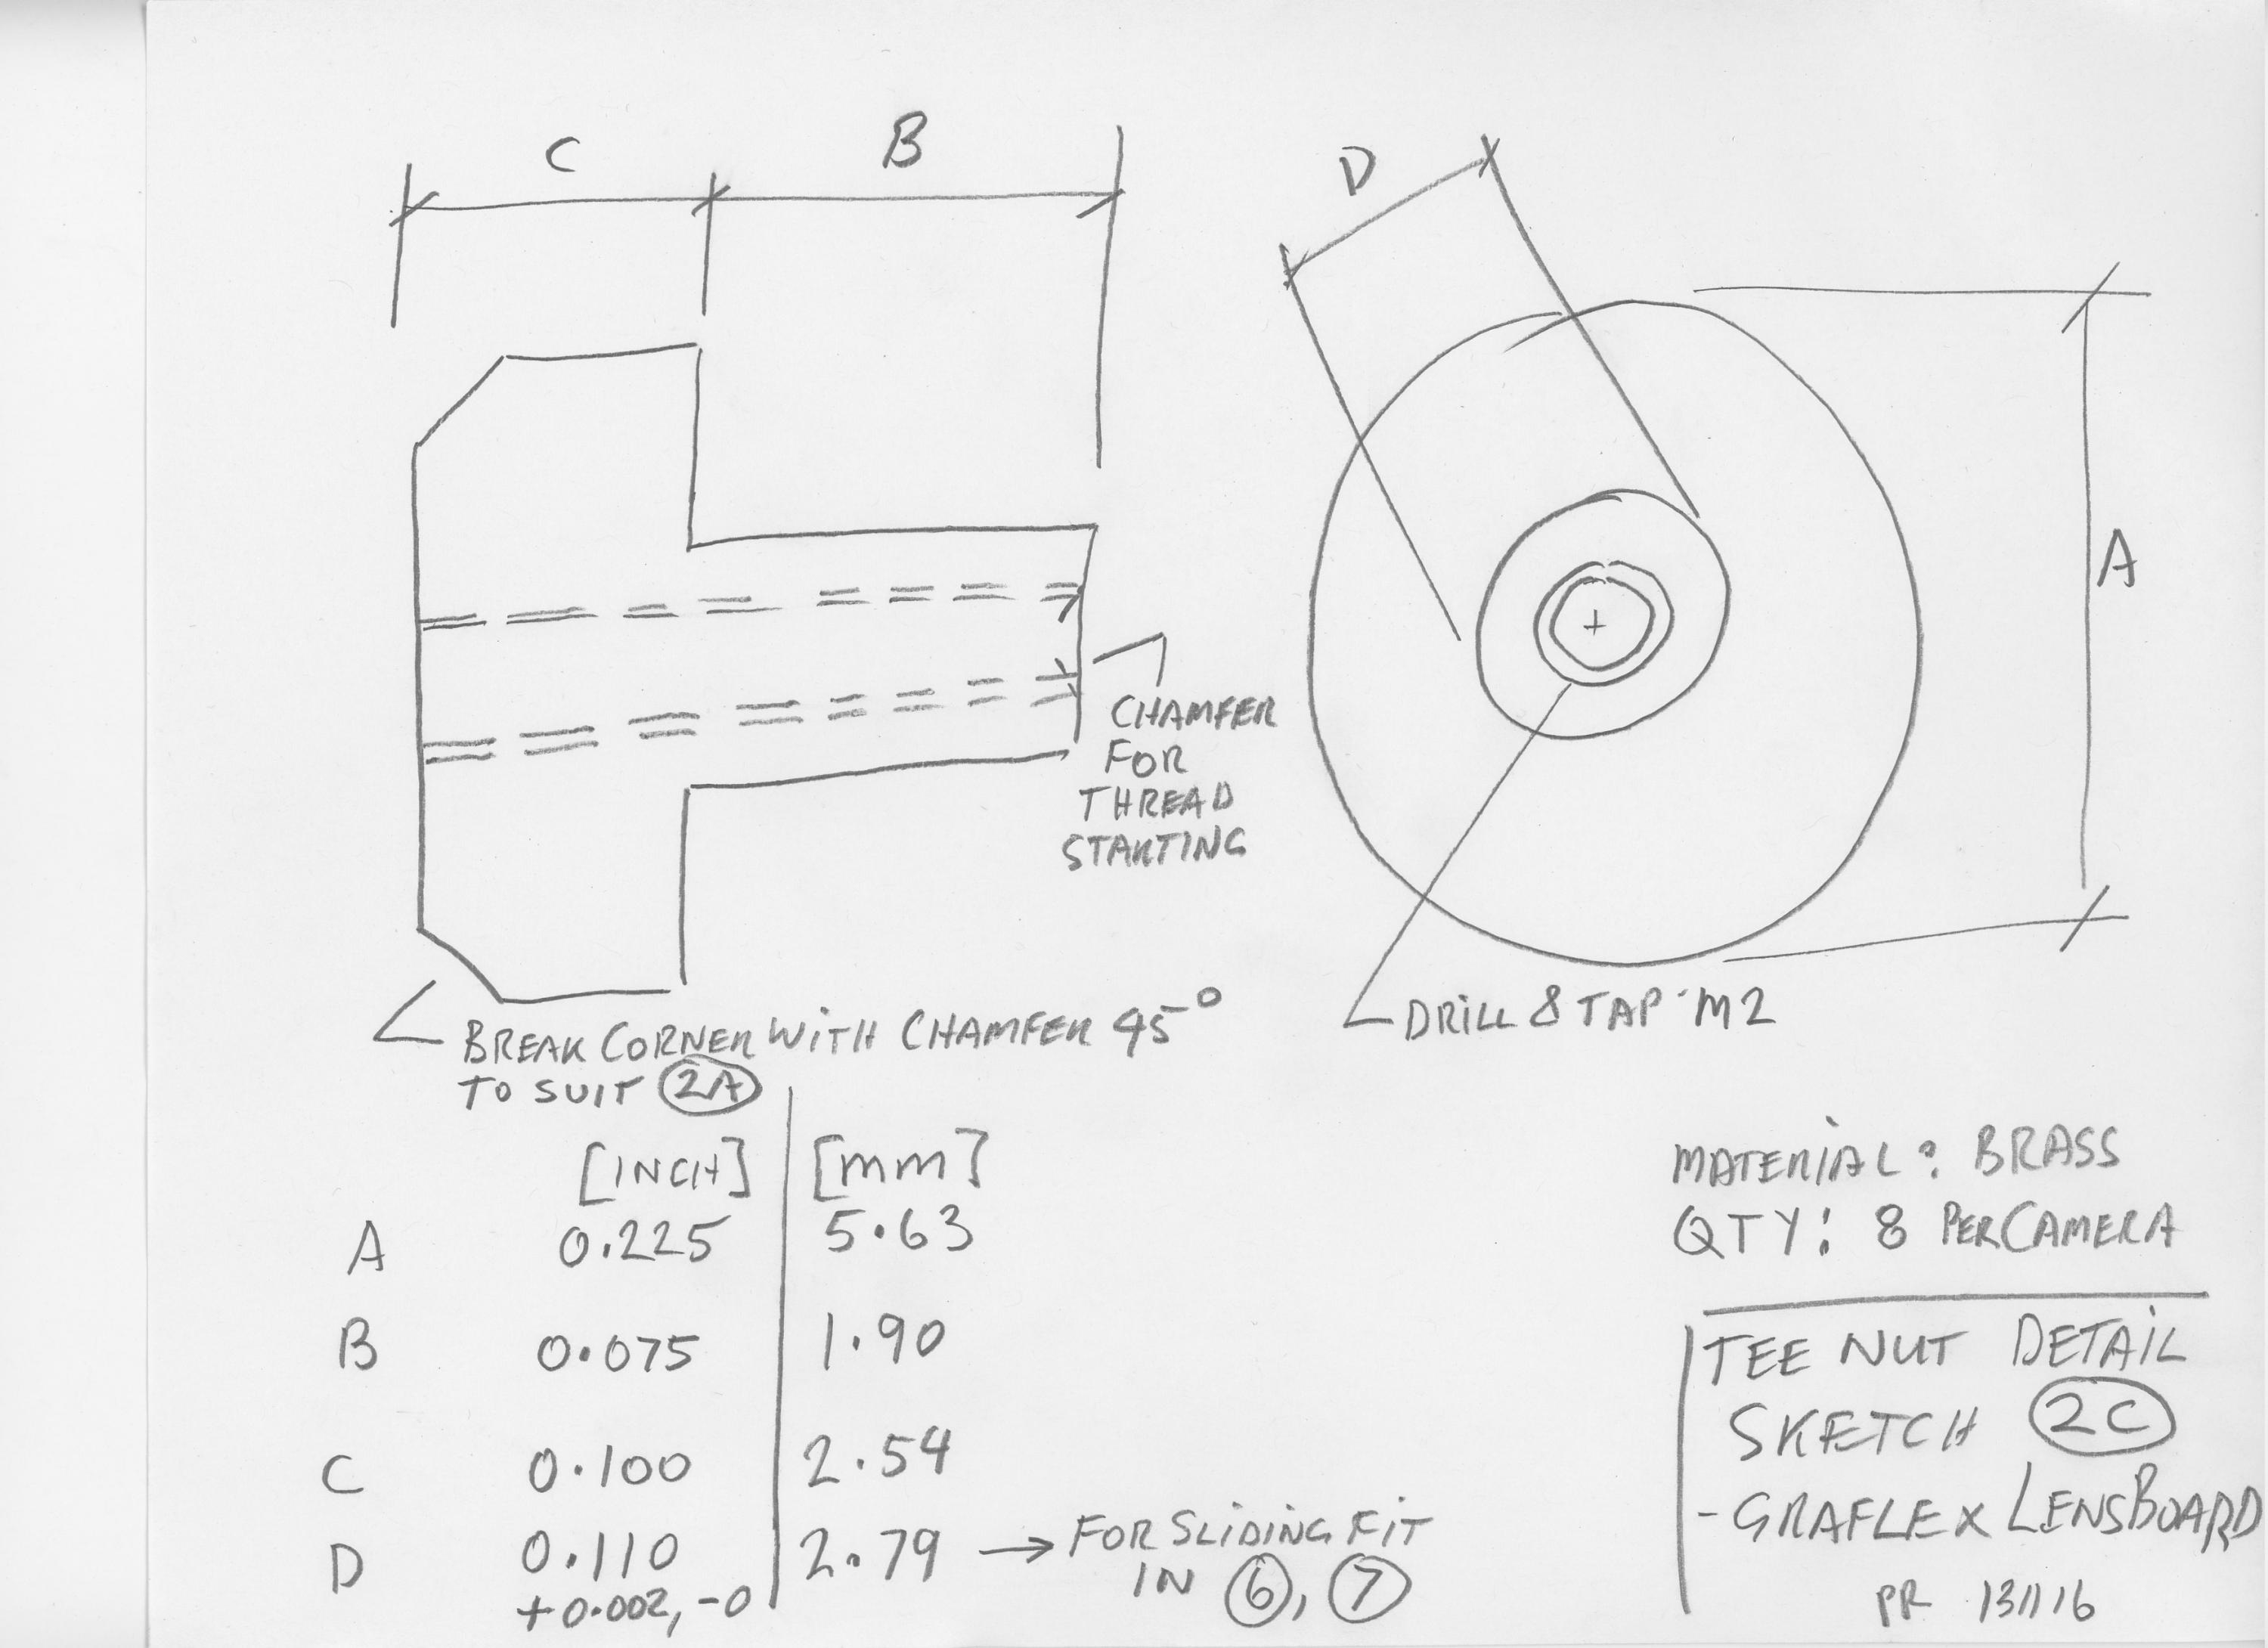 C
B
D
A
CHAMFER
FOR
THREAD
STARTING
BREAK CORNER WITH CHAMFER 45°
TO SUIT 2A
DRILL & TAP M2
[INCH] [mm]
A 0.225 5.63
B 0.075 1.90
C 0.100 2.54
D 0.110 2.79 → FOR SLIDING FIT
+0.002, -0 IN 6, 7
MATERIAL: BRASS
QTY: 8 PER CAMERA
TEE NUT DETAIL
SKETCH 2C
- GRAFLEX LENSBOARD
PR 131116